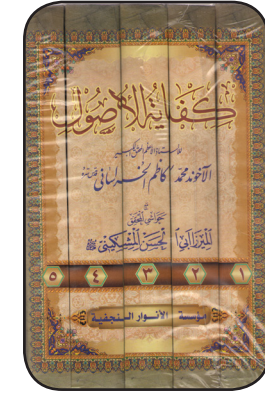 كفاية الأصول
الآخوند محمد كاظم الخراساني
مع
حواشي المحقق
الميرزا أبي الحسن المشكيني
١ ٢ ٣ ٤ ٥
مؤسسة الأنوار النجفية